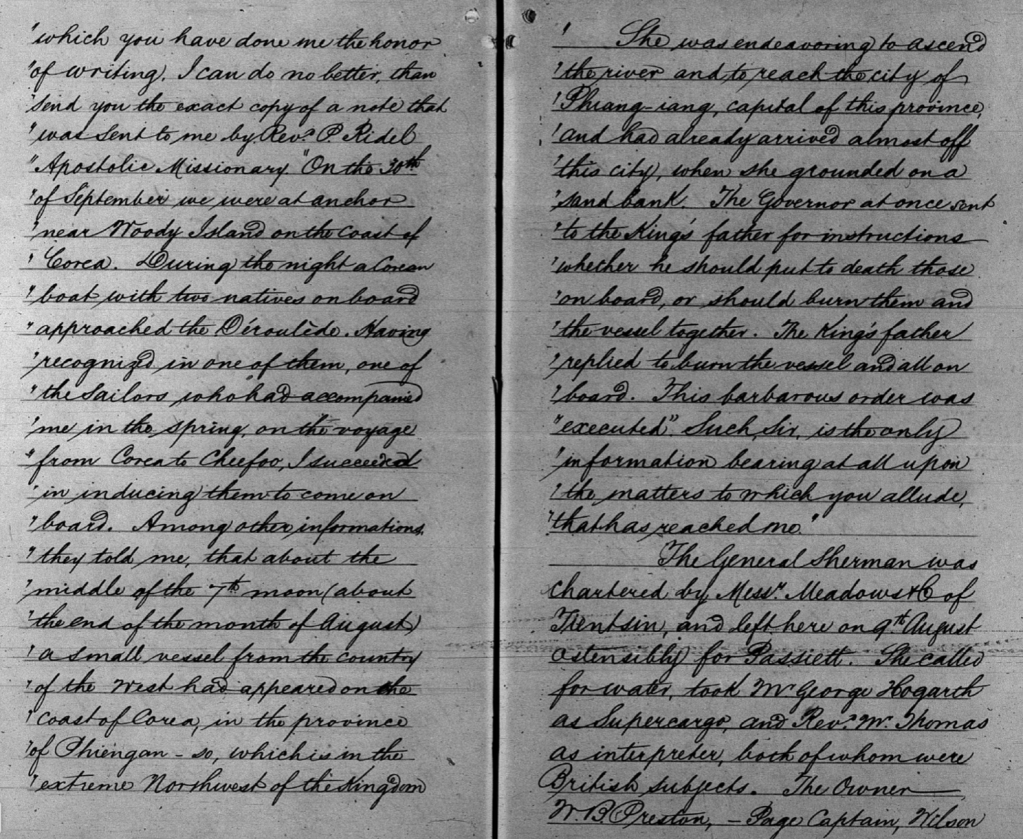 "which you have done me the honor
"of writing. I can do no better, than
"send you the exact copy of a note that
"was sent to me by Revd. P. Ridel
"Apostolic Missionary. "On the 30th
"of September we were at anchor
"near Woody Island on the Coast of
"Corea. During the night a Corean
"boat with two natives on board
"approached the Déroulède. Having
"recognized in one of them, one of
"the Sailors who had accompanied
"me in the spring, on the voyage
"from Corea to Cheefoo, I succeeded
"in inducing them to come on
"board. Among other informations,
"they told me, that about the
"middle of the 7th moon (about
"the end of the month of August)
"a small vessel from the country
"of the West had appeared on the
"coast of Corea, in the province
"of Phiengan-so, which is in the
"extreme Northwest of the Kingdom
" She was endeavoring to ascend
"the river and to reach the city of
"Phiang-iang, capital of this province,
"and had already arrived almost off
"this city, when she grounded on a
"sand bank. The Governor at once sent
"to the King's father for instructions
"whether he should put to death those
"on board, or should burn them and
"the vessel together. The King's father
"replied to burn the vessel and all on
"board. This barbarous order was
"executed". Such, Sir, is the only
"information bearing at all upon
"the matters to which you allude,
"that has reached me."
The General Sherman was
chartered by Messr. Meadows & C of
Tientsin, and left here on 9th August
ostensibly for Passiett. She called
for water, took Mr George Hogarth
as Supercargo, and Revd. Mr. Thomas
as interpreter, both of whom were
British subjects. The Owner
W. B. Preston, - Page Captain, Wilson